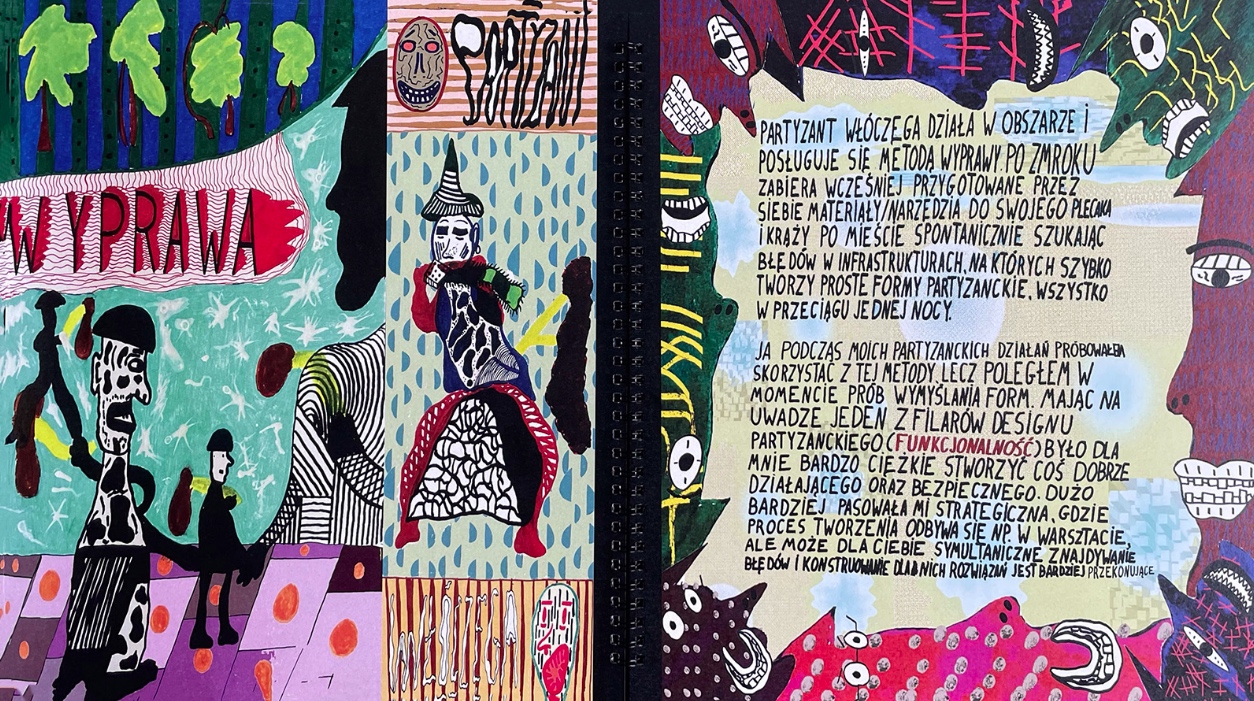 WYPRAWA
PARTYZANT
WŁÓCZĘGA
PARTYZANT WŁÓCZĘGA DZIAŁA W OBSZARZE I
POSŁUGUJE SIĘ METODĄ WYPRAWY. PO ZMROKU
ZABIERA WCZEŚNIEJ PRZYGOTOWANE PRZEZ
SIEBIE MATERIAŁY/NARZĘDZIA DO SWOJEGO PLECAKA
I KRĄŻY PO MIEŚCIE SPONTANICZNIE SZUKAJĄC
BŁĘDÓW W INFRASTRUKTURACH, NA KTÓRYCH SZYBKO
TWORZY PROSTE FORMY PARTYZANCKIE. WSZYSTKO
W PRZECIĄGU JEDNEJ NOCY.
JA PODCZAS MOICH PARTYZANCKICH DZIAŁAŃ PRÓBOWAŁEM
SKORZYSTAĆ Z TEJ METODY LECZ POLEGŁEM W
MOMENCIE PRÓB WYMYŚLANIA FORM. MAJĄC NA
UWADZE JEDEN Z FILARÓW DESIGNU
PARTYZANCKIEGO (FUNKCJONALNOŚĆ) BYŁO DLA
MNIE BARDZO CIĘŻKIE STWORZYĆ COŚ DOBRZE
DZIAŁAJĄCEGO ORAZ BEZPIECZNEGO. DUŻO
BARDZIEJ PASOWAŁA MI STRATEGICZNA, GDZIE
PROCES TWORZENIA ODBYWA SIĘ NP. W WARSZTACIE,
ALE MOŻE DLA CIEBIE SYMULTANICZNE ZNAJDYWANIE
BŁĘDÓW I KONSTRUOWANIE DLA NICH ROZWIĄZAŃ JEST BARDZIEJ PRZEKONUJĄCE